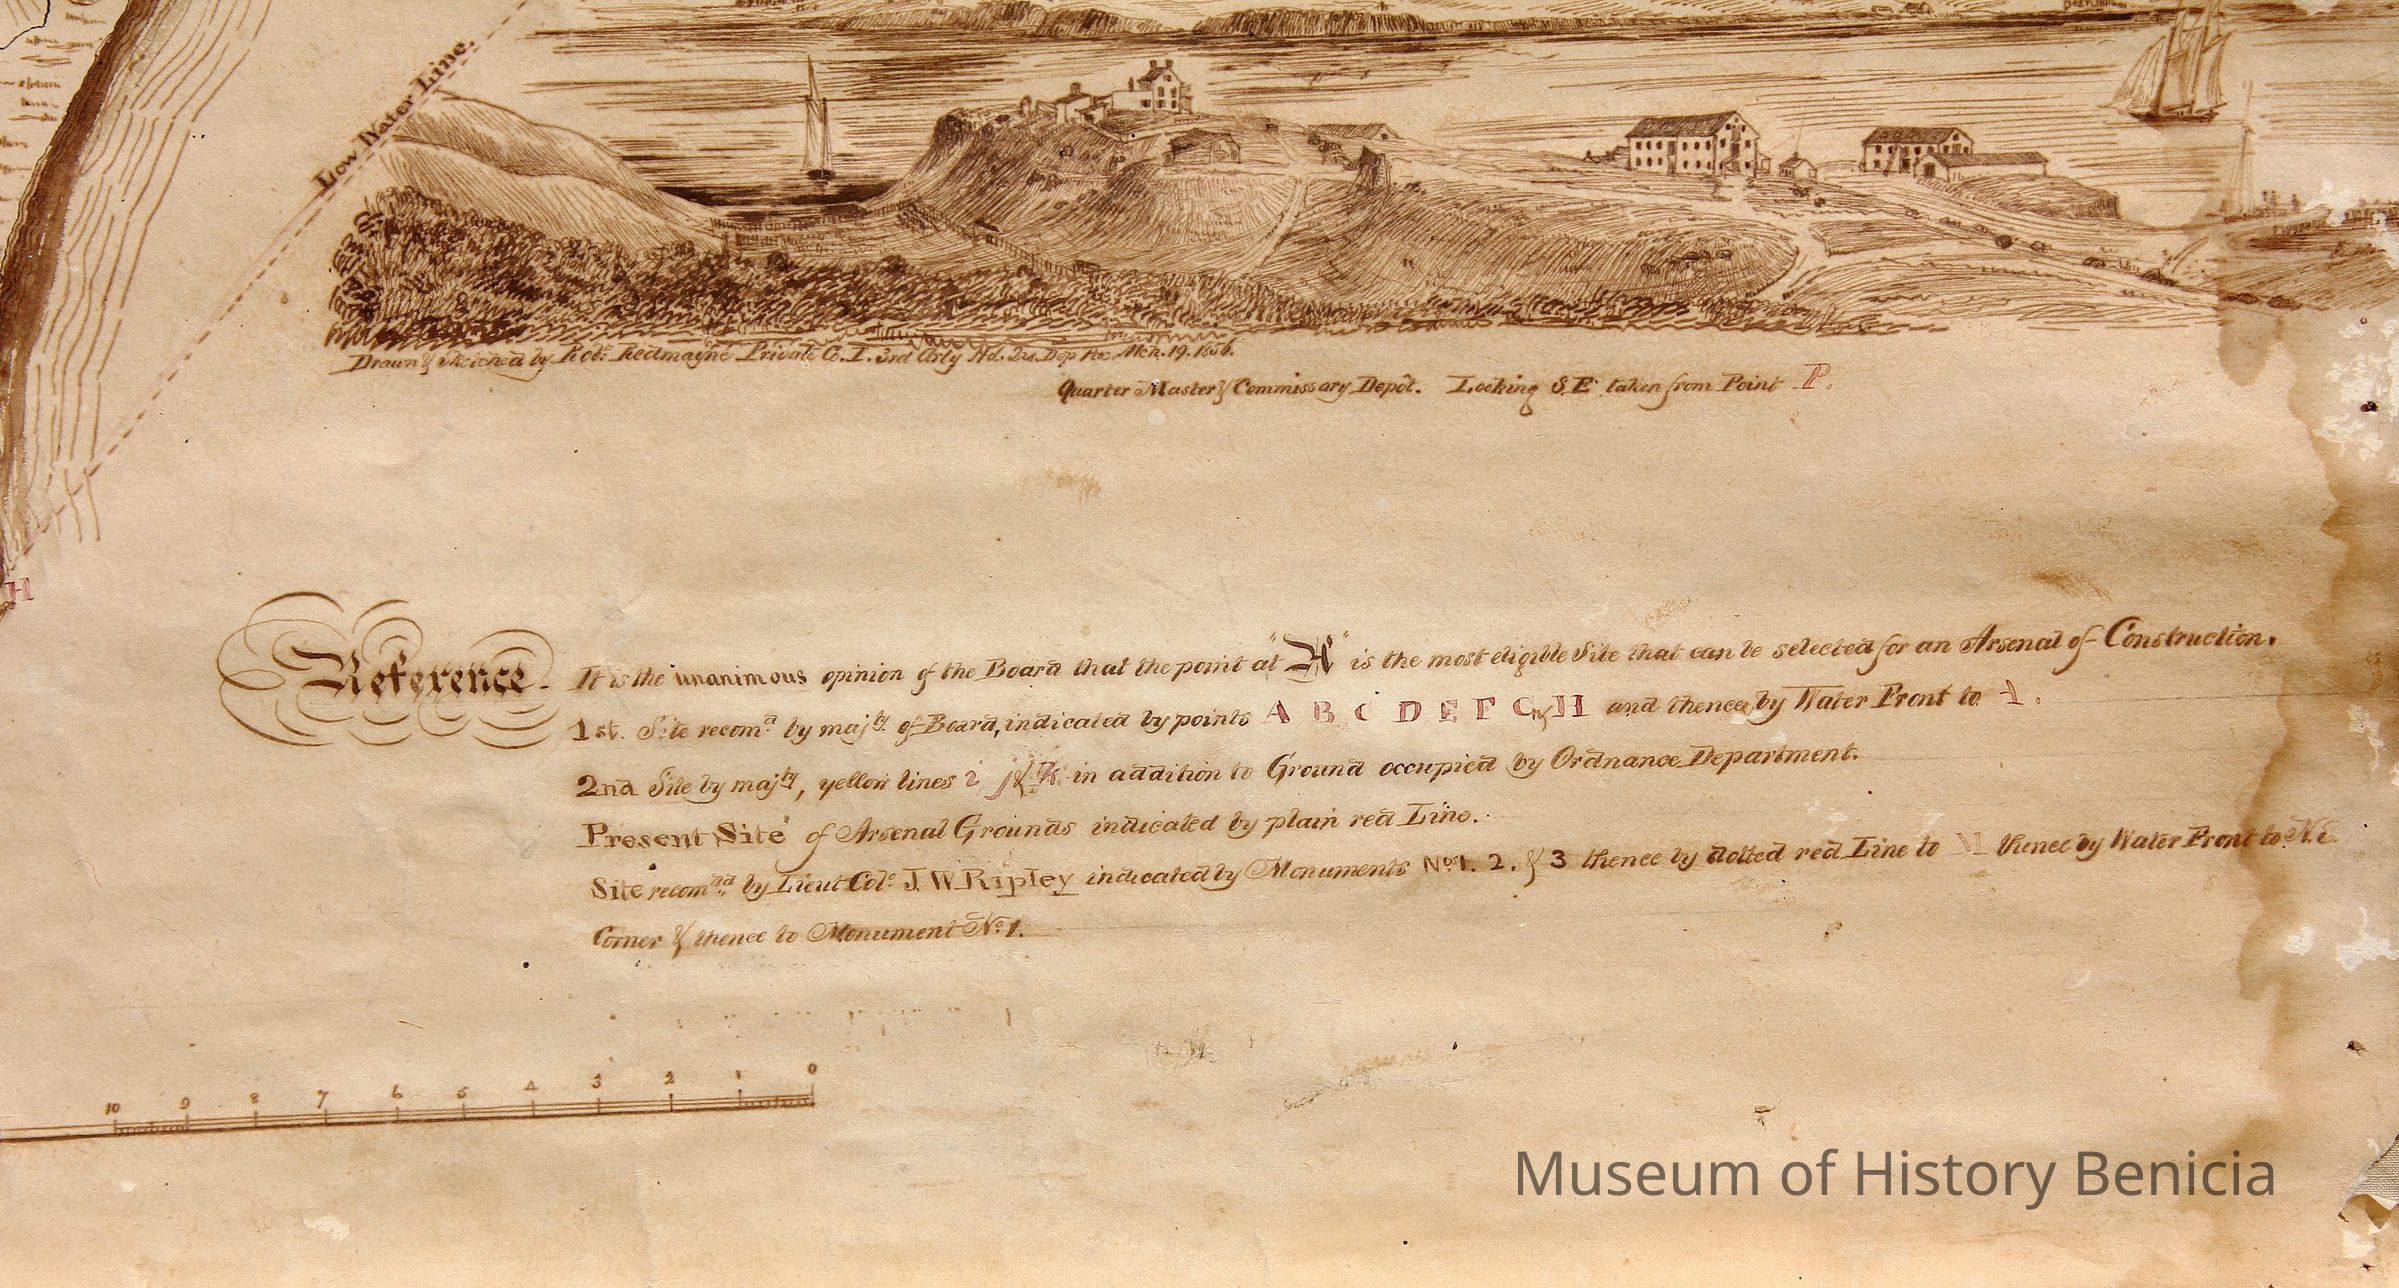 Low Water Line.
Drawn & Sketched by Robt. Redmayne Private Co. I. 3rd Arty Hd. Qu. Dep Pac. Mch. 19. 1856.
Quarter Master & Commissary Depôt. Looking S.E. taken from Point P.
H
Reference. It is the unanimous opinion of the Board that the point at "" is the most eligible Site that can be selected for an Arsenal of Construction.
1st. Site recomd. by majty. of Board, indicated by points A B C D E F G & H and thence by Water Front to A.
2nd Site by majty, yellow lines i j & k in addition to Ground occupied by Ordnance Department.
Present Site of Arsenal Grounds indicated by plain red Line.
Site recomdd. by Lieut Col. J. W. Ripley indicated by Monuments Nos. 1. 2. & 3 thence by dotted red Line to M thence by Water Front to N.E.
Corner & thence to Monument No. 1.
10 9 8 7 6 5 4 3 2 1 0
Museum of History Benicia